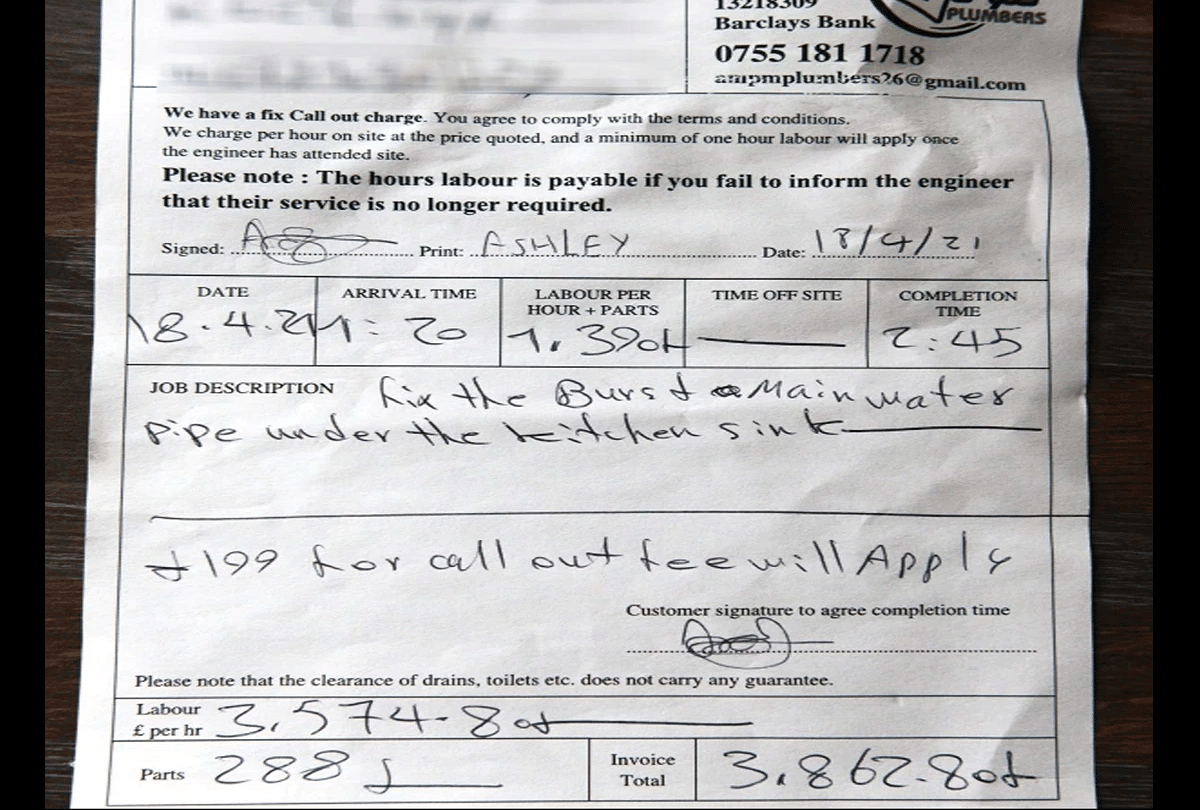 13218309
Barclays Bank
PLUMBERS
0755 181 1718
ampmplumbers26@gmail.com
We have a fix Call out charge. You agree to comply with the terms and conditions.
We charge per hour on site at the price quoted, and a minimum of one hour labour will apply once
the engineer has attended site.
Please note : The hours labour is payable if you fail to inform the engineer
that their service is no longer required.
Signed: Print: ASHLEY Date: 18/4/21
DATE ARRIVAL TIME LABOUR PER HOUR + PARTS TIME OFF SITE COMPLETION TIME
18.4.21 1:20 1,390£ 2:45
JOB DESCRIPTION fix the Burst Main water
pipe under the kitchen sink
£199 for call out fee will Apply
Customer signature to agree completion time
Please note that the clearance of drains, toilets etc. does not carry any guarantee.
Labour £ per hr 3,574-80£
Parts 288£ Invoice Total 3,862-80£